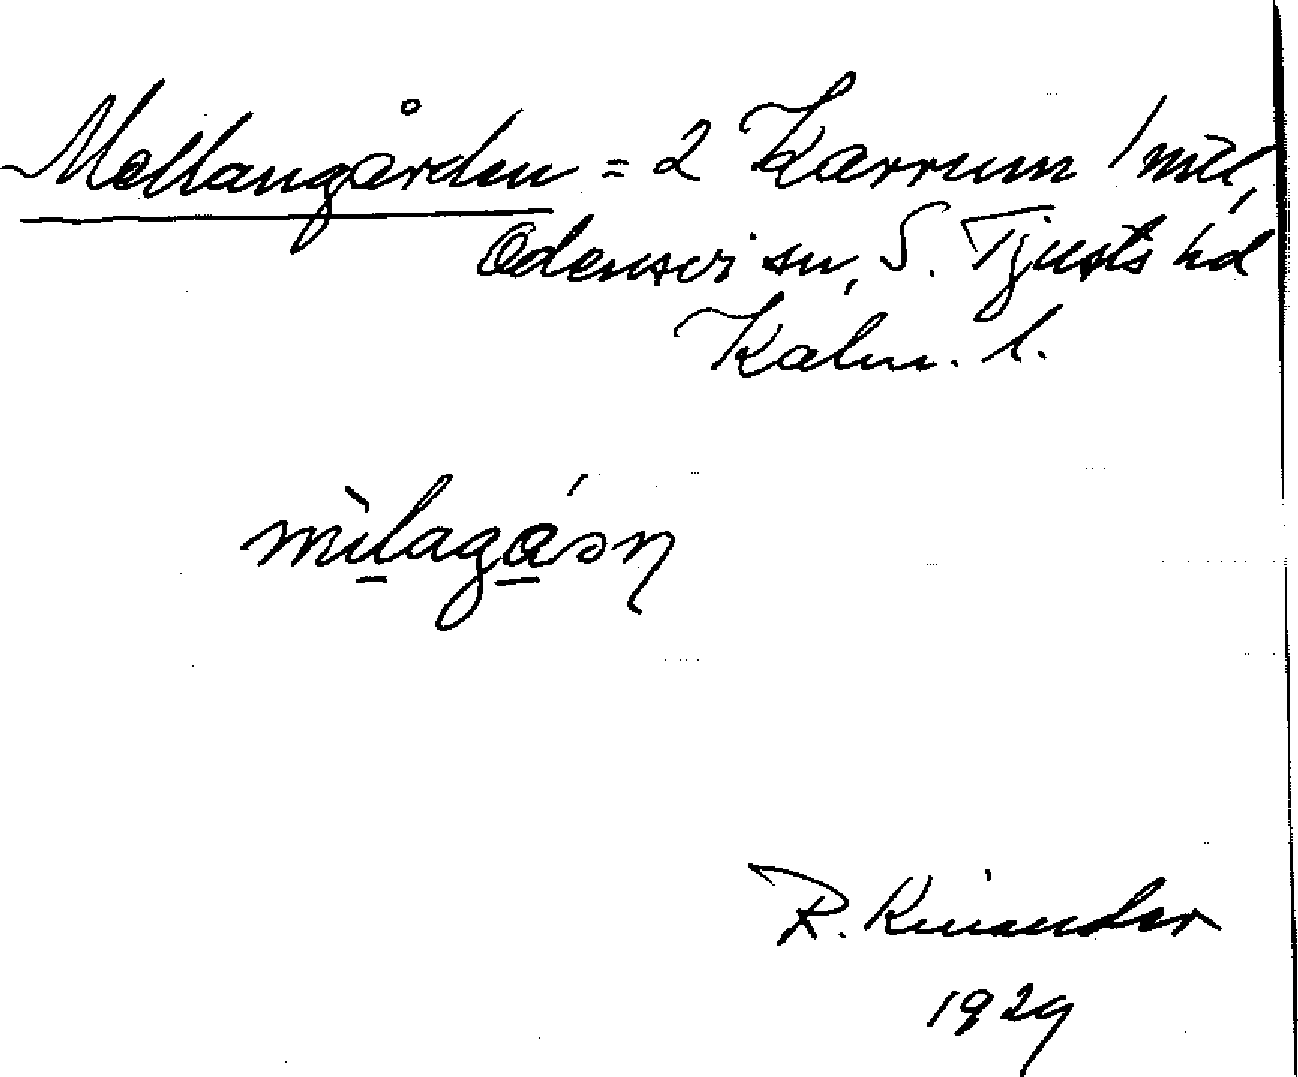 Mellangården = 2 Kärrum 1 mtl,
Odensvi sn, S. Tjusts hd
Kalm. l.
mìlagán
R. Kinander
1929